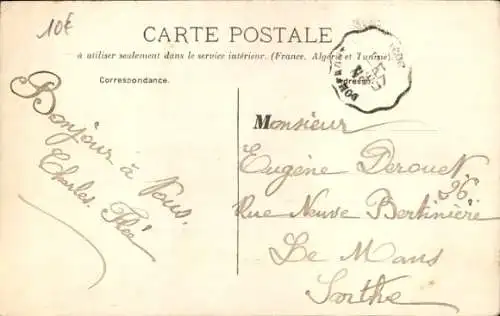 10€
CARTE POSTALE
à utiliser seulement dans le service intérieur. (France, Algérie et Tunisie).
Correspondance.
Adresse.
Bonjour à Vous.
Charles
Monsieur
Eugène Derouet
26
Rue Neuve Bertinière
Le Mans
Sarthe